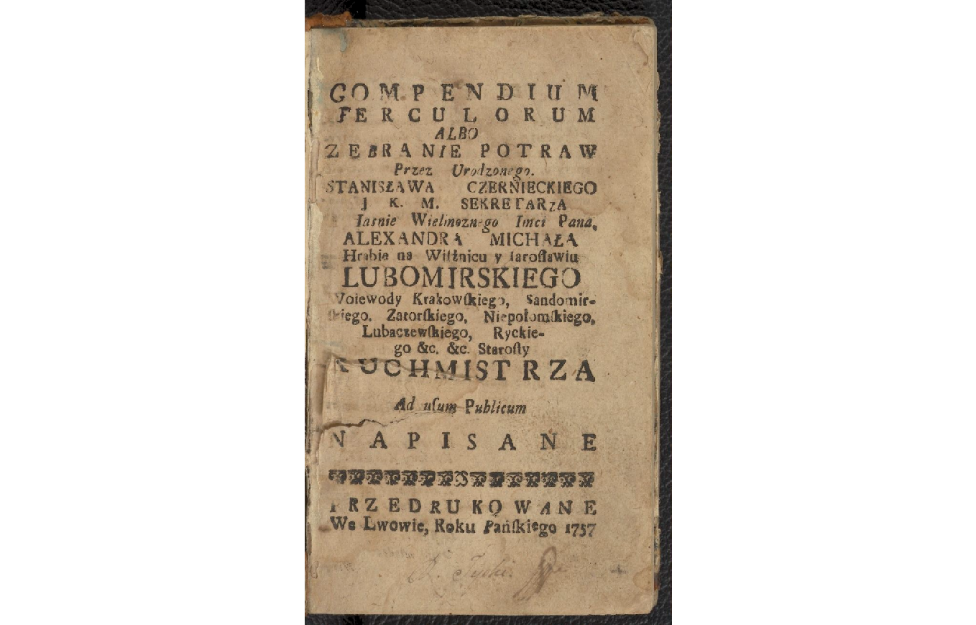 COMPENDIUM
FERCULORUM
ALBO
ZEBRANIE POTRAW
Przez Urodzonego.
STANISŁAWA CZERNIECKIEGO
J K. M. SEKRETARzA
Iasnie Wielmoznego Imci Pana,
ALEXANDRA MICHAŁA
Hrabie na Wiśnicu y Iarosławiu
LUBOMIRSKIEGO
Woiewody Krakowſkiego, Sandomir-
ſkiego. Zatorſkiego, Niepołomſkiego,
Lubaczewſkiego, Ryckie-
go &c. &c. Staroſty
KUCHMISTRZA
Ad uſum Publicum
NAPISANE
PRZEDRUKOWANE
We Lwowie, Roku Pańſkiego 1757